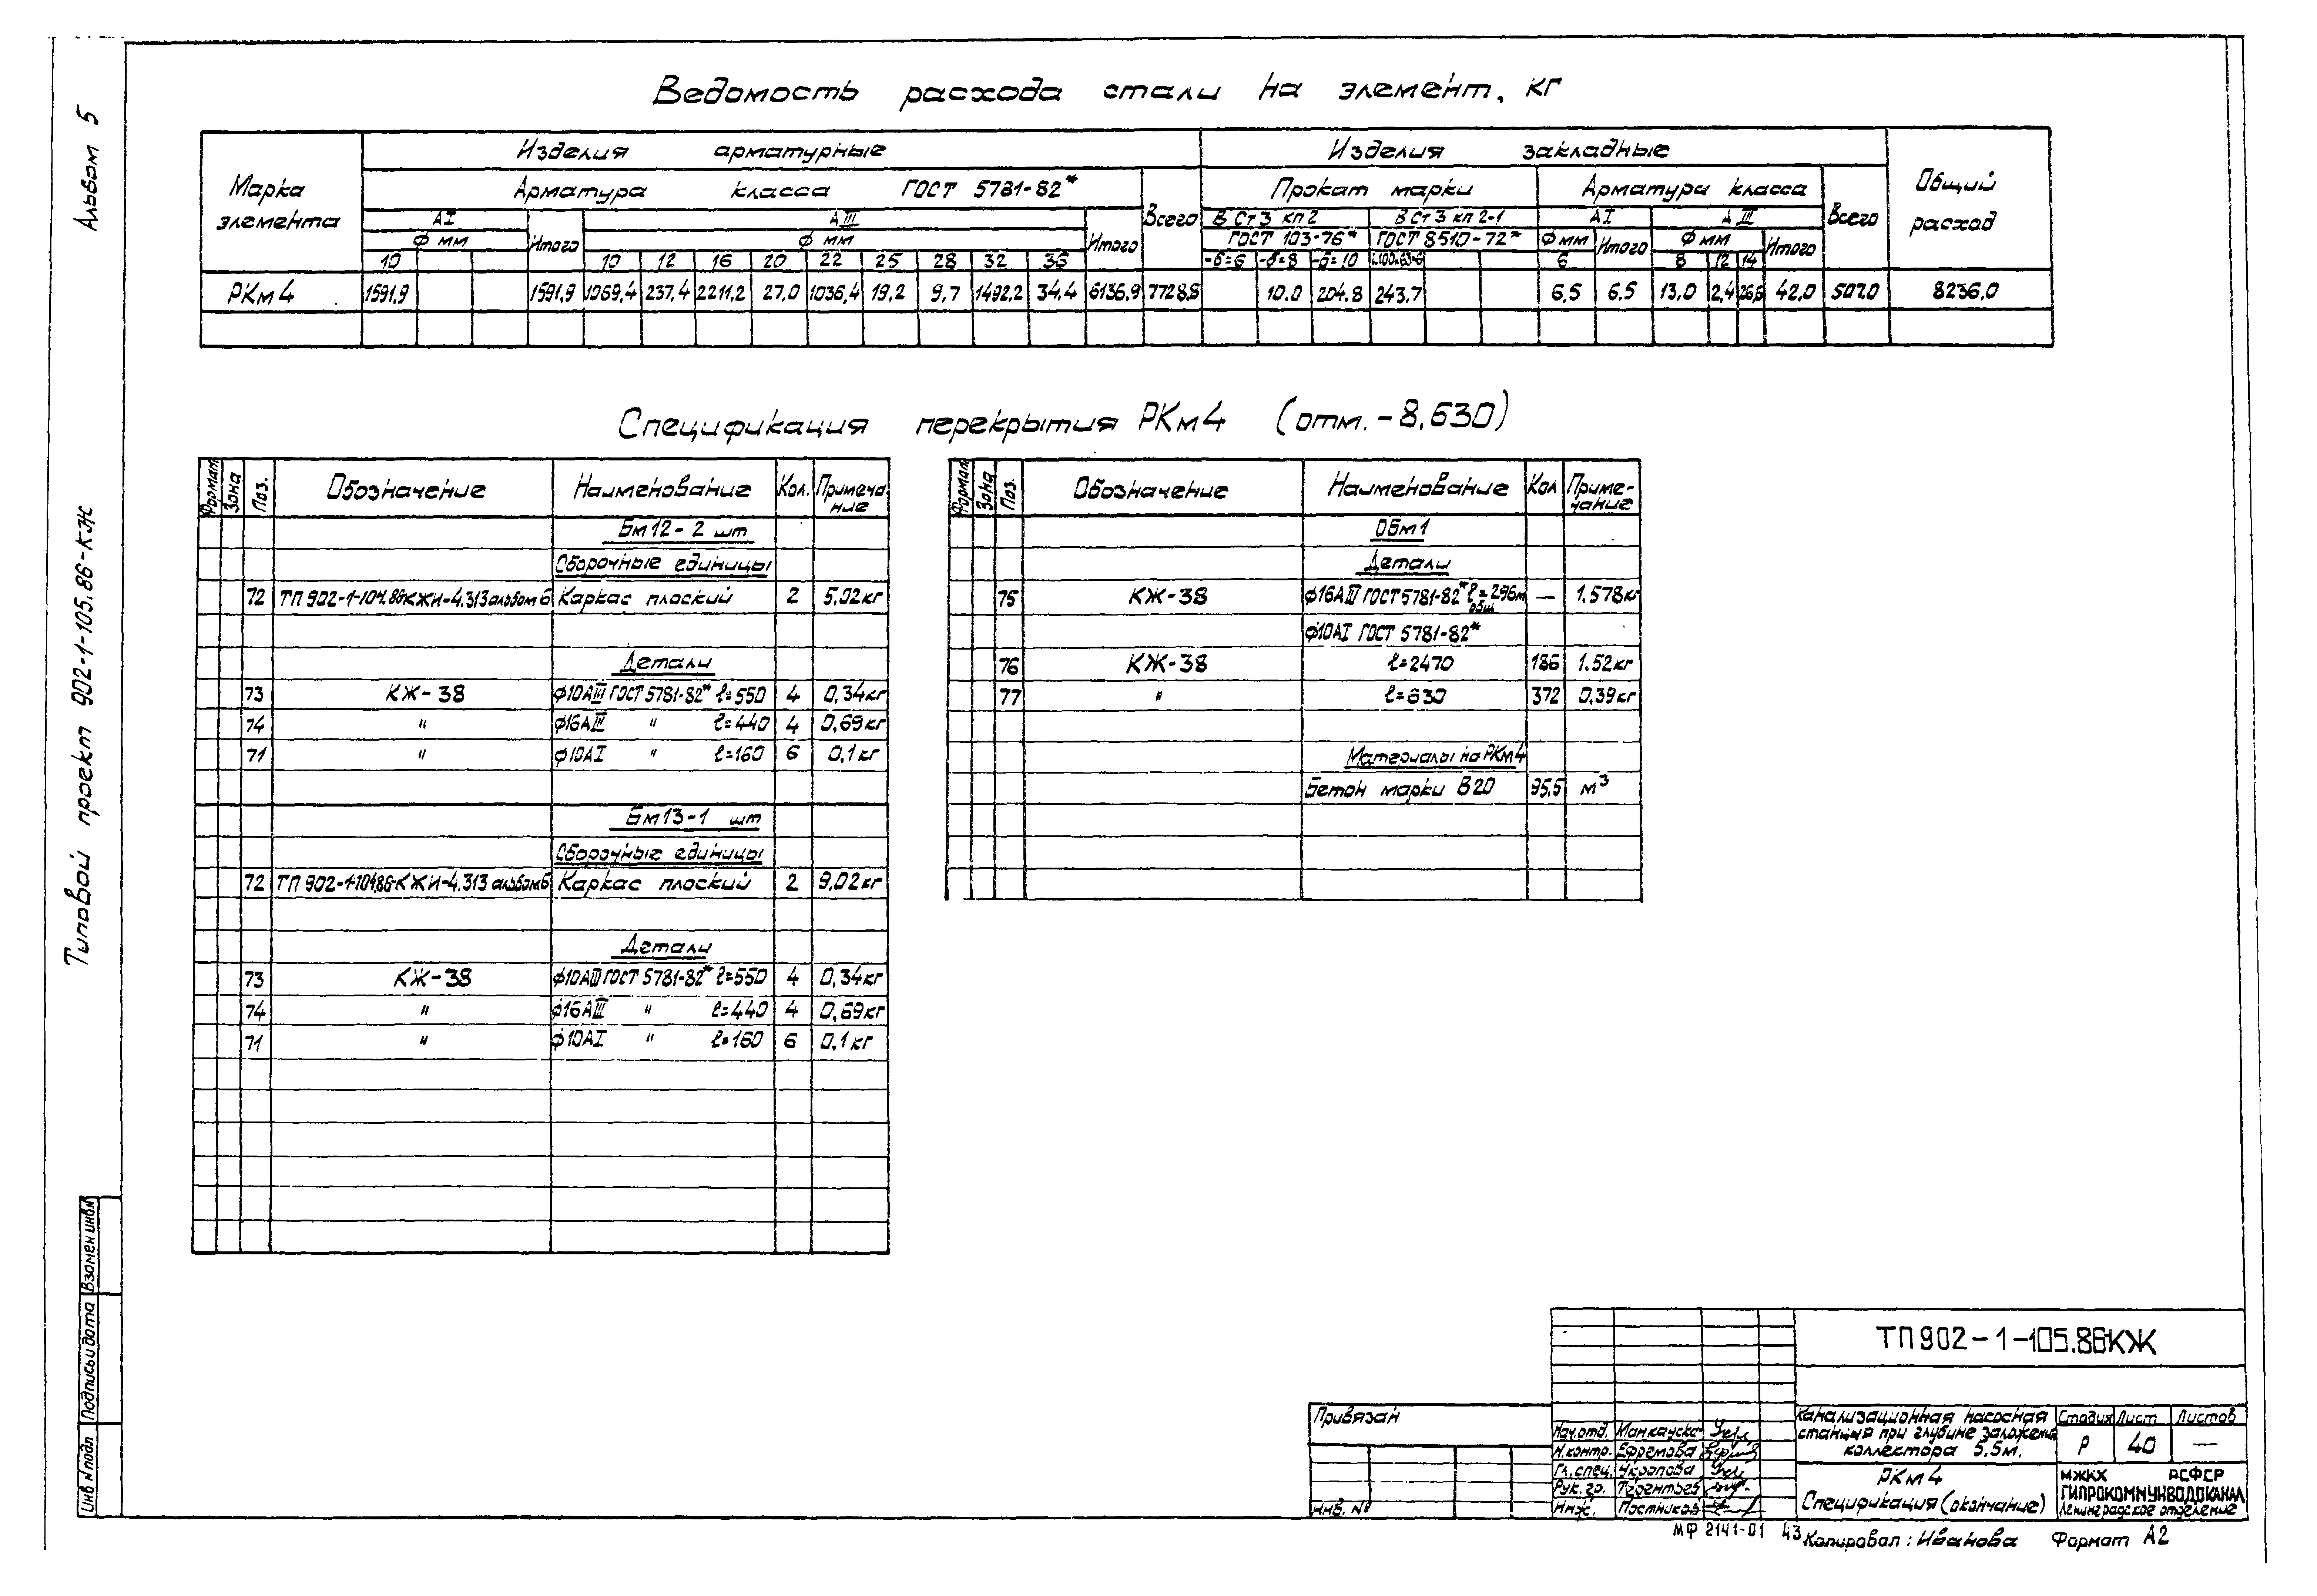 Альбом 5
Типовой проект 902-1-105.86-КЖ
Ведомость расхода стали на элемент, кг
Марка элемента
Изделия арматурные
Изделия закладные
Общий расход
Арматура класса ГОСТ 5781-82*
Всего
Прокат марки
Арматура класса
Всего
АI Итого АIII Итого
В Ст 3 кп 2 В Ст 3 кп 2-1 АI АIII
Ф мм Ф мм ГОСТ 103-76* ГОСТ 8510-72* Ф мм Итого Ф мм Итого
10 10 12 16 20 22 25 28 32 36 -δ=6 -δ=8 -δ=10 L100×63×6 6 8 12 14
РКм4 1591,9 1591,9 1069,4 237,4 2211,2 27,0 1036,4 19,2 9,7 1492,2 34,4 6136,9 7728,8 10.0 204.8 243,7 6,5 6.5 13,0 2,4 26,6 42,0 507.0 8236,0
Спецификация перекрытия РКм4 (отм. -8,630)
Формат Зона Поз. Обозначение Наименование Кол. Примечание
Бм12-2 шт
Сборочные единицы
72 ТП 902-1-104.86КЖИ-4.313 альбом 6 Каркас плоский 2 5,02кг
Детали
73 КЖ-38 ф10АIII ГОСТ 5781-82* ℓ=550 4 0,34кг
74 " ф16АIII " ℓ=440 4 0,69кг
71 " ф10АI " ℓ=160 6 0,1кг
Бм13-1 шт
Сборочные единицы
72 ТП 902-1-104.86-КЖИ-4.313 альбом 6 Каркас плоский 2 9,02кг
Детали
73 КЖ-38 ф10АIII ГОСТ 5781-82* ℓ=550 4 0,34кг
74 " ф16АIII " ℓ=440 4 0,69кг
71 " ф10АI " ℓ=160 6 0,1кг
Формат Зона Поз. Обозначение Наименование Кол Примечание
ОБм1
Детали
75 КЖ-38 ф16АIII ГОСТ 5781-82* ℓ общ=296м — 1,578кг
ф10АI ГОСТ 5781-82*
76 КЖ-38 ℓ=2470 186 1.52кг
77 " ℓ=630 372 0,39кг
Материалы на РКм4
Бетон марки В20 95,5 м³
Взамен инв.№
Подпись и дата
Инв № подл
Привязан
Инв. №
ТП902-1-105.86КЖ
Нач.отд.
Н.контр. Ефремова
Гл. спец. Укропова
Рук. гр. Терентьев
Инж. Постников
Канализационная насосная станция при глубине заложения коллектора 5,5м.
Стадия Лист Листов
Р 40 —
РКм4
Спецификация (окончание)
МЖКХ РСФСР
ГИПРОКОММУНВОДОКАНАЛ
Ленинградское отделение
МФ 2141-01 43 Копировал: Иванова Формат А2